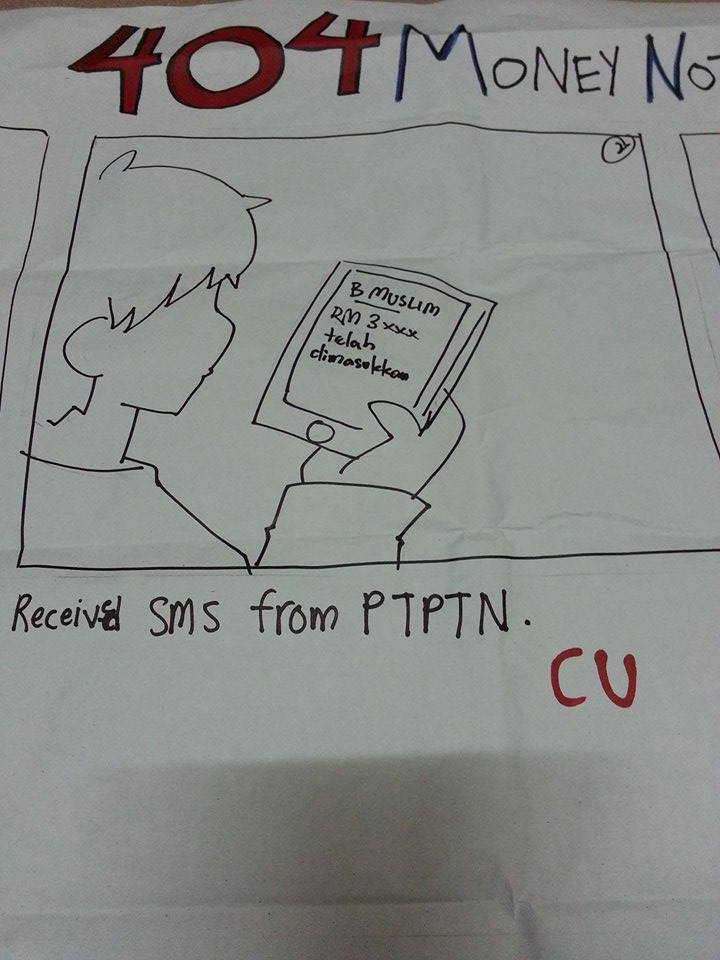 404 MONEY NO
2
B MUSLIM
RM 3xxx
telah
dimasukkan
Received SMS from PTPTN.
CU